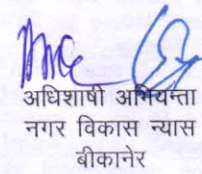 अधिशाषी अभियन्ता
नगर विकास न्यास
बीकानेर